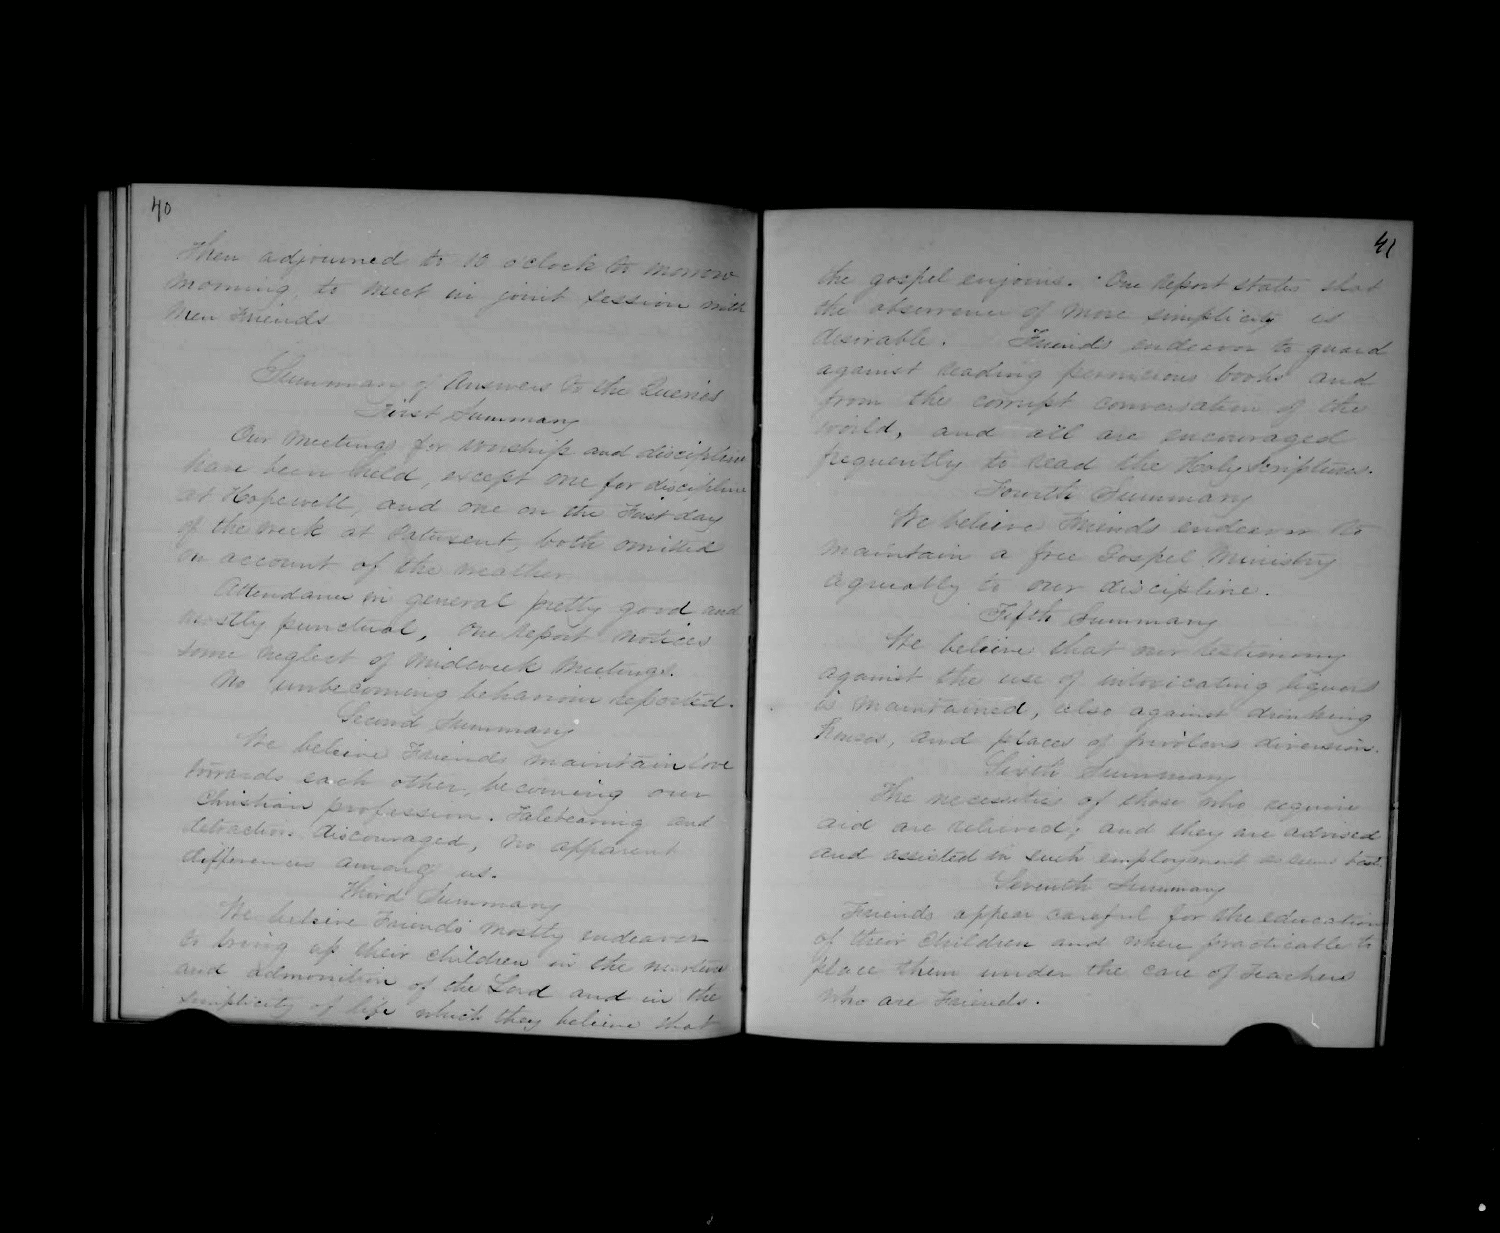 40
Then adjourned to 10 o'clock to morrow
morning, to meet in joint session with
Men Friends
Summary of Answers to the Queries
First Summary
Our meetings for worship and discipline
have been held, except one for discipline
at Hopewell, and one on the First day
of the week at Patuxent, both omitted
on account of the weather
Attendance in general pretty good and
mostly punctual, One Report notices
some neglect of midweek meetings.
No unbecoming behaviour reported.
Second Summary
We believe Friends maintain love
towards each other, becoming our
Christian profession. Talebearing and
detraction discouraged, no apparent
differences among us.
Third Summary
We believe Friends mostly endeavor
to bring up their children in the nurture
and admonition of the Lord and in the
simplicity of life which they believe that
41
the gospel enjoins. One Report states that
the observance of more simplicity is
desirable. Friends endeavor to guard
against reading pernicious books and
from the corrupt conversation of the
world, and all are encouraged
frequently to read the Holy Scriptures.
Fourth Summary
We believe Friends endeavor to
maintain a free Gospel Ministry
agreeably to our discipline.
Fifth Summary
We believe that our testimony
against the use of intoxicating liquors
is maintained, also against drinking
houses, and places of frivolous diversion.
Sixth Summary
The necessities of those who require
aid are relieved; and they are advised
and assisted in such employment as seems best.
Seventh Summary
Friends appear careful for the education
of their children and when practicable to
place them under the care of Teachers
who are Friends.